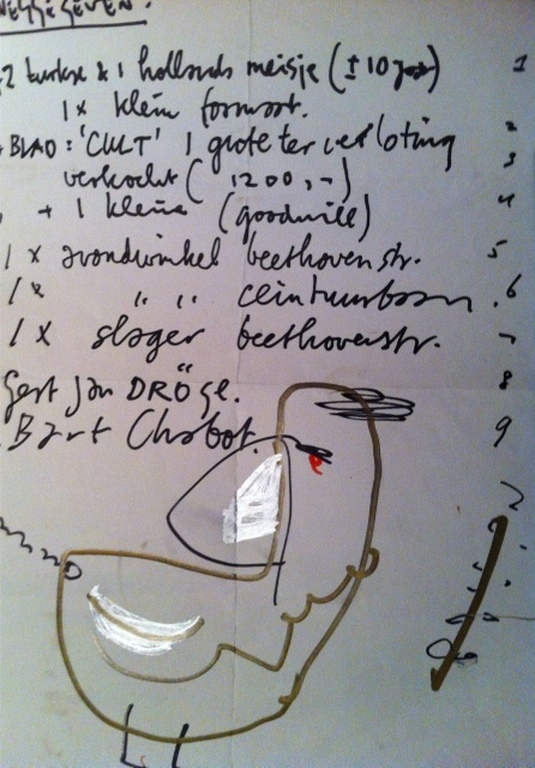 WEGGEGEVEN.
2 turkse & 1 hollands meisje (±10 jaar) 1
1x klein formaat.
BLAD: 'CULT' 1 grote ter verloting 2
verkocht (1200,-) 3
+ 1 kleine (goodwill) 4
1 x avondwinkel beethovenstr. 5
1 x " " ceintuurbaan . 6
1 x slager beethovenstr. 7
Gert Jan DRÖGE. 8
Bart Chabot. 9